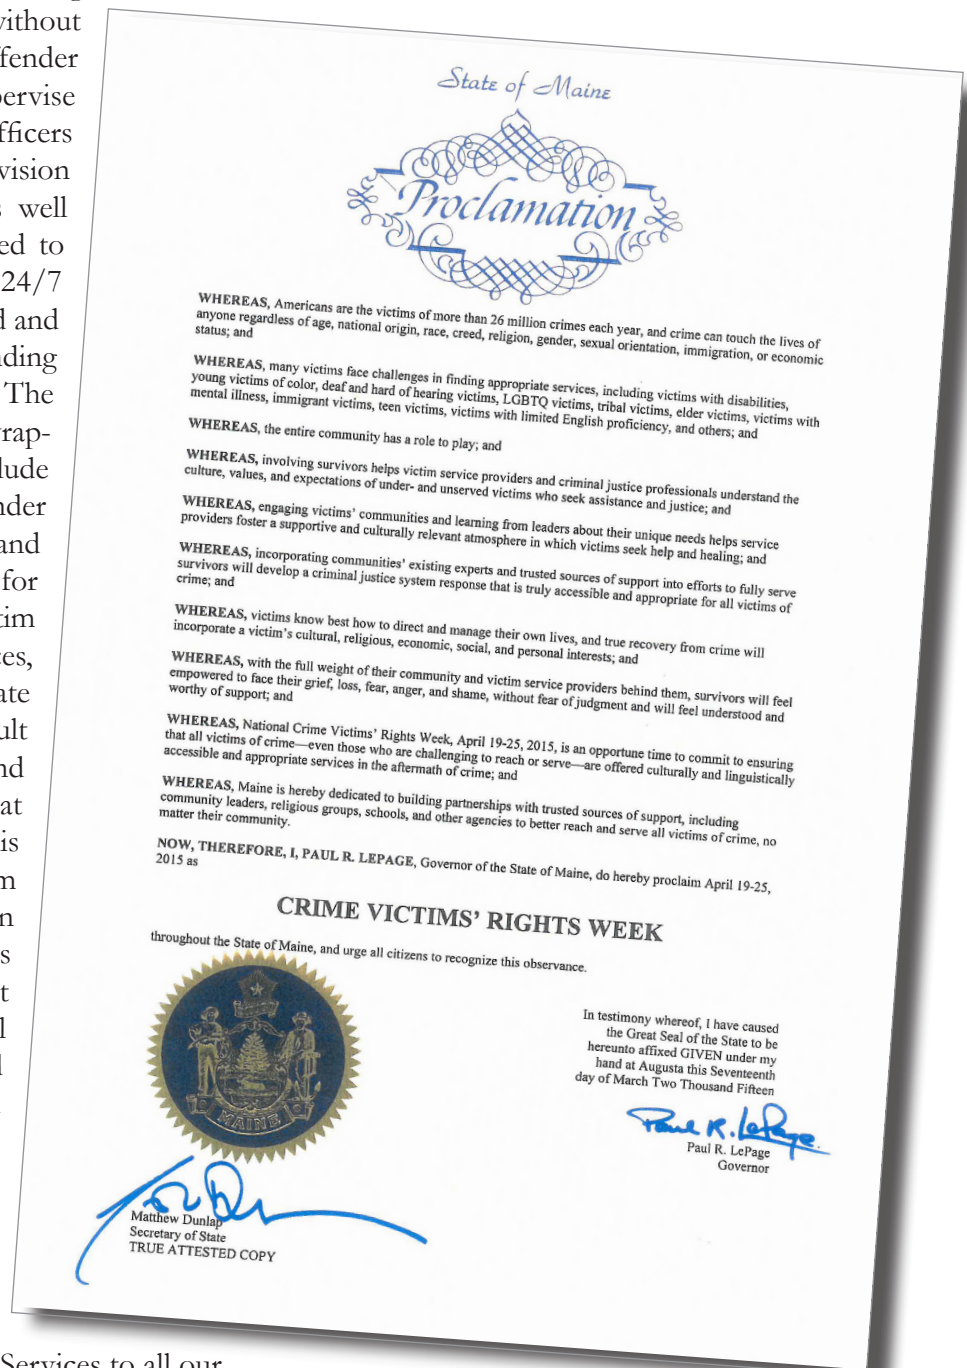 ithout
ffender
pervise
fficers
vision
s well
ed to
24/7
d and
nding
The
rap-
lude
nder
and
for
tim
ces,
ate
ult
nd
at
is
m
n
s
t
l
Services to all our
State of Maine
Proclamation
WHEREAS, Americans are the victims of more than 26 million crimes each year, and crime can touch the lives of
anyone regardless of age, national origin, race, creed, religion, gender, sexual orientation, immigration, or economic
status; and
WHEREAS, many victims face challenges in finding appropriate services, including victims with disabilities,
young victims of color, deaf and hard of hearing victims, LGBTQ victims, tribal victims, elder victims, victims with
mental illness, immigrant victims, teen victims, victims with limited English proficiency, and others; and
WHEREAS, the entire community has a role to play; and
WHEREAS, involving survivors helps victim service providers and criminal justice professionals understand the
culture, values, and expectations of under- and unserved victims who seek assistance and justice; and
WHEREAS, engaging victims’ communities and learning from leaders about their unique needs helps service
providers foster a supportive and culturally relevant atmosphere in which victims seek help and healing; and
WHEREAS, incorporating communities’ existing experts and trusted sources of support into efforts to fully serve
survivors will develop a criminal justice system response that is truly accessible and appropriate for all victims of
crime; and
WHEREAS, victims know best how to direct and manage their own lives, and true recovery from crime will
incorporate a victim’s cultural, religious, economic, social, and personal interests; and
WHEREAS, with the full weight of their community and victim service providers behind them, survivors will feel
empowered to face their grief, loss, fear, anger, and shame, without fear of judgment and will feel understood and
worthy of support; and
WHEREAS, National Crime Victims’ Rights Week, April 19-25, 2015, is an opportune time to commit to ensuring
that all victims of crime—even those who are challenging to reach or serve—are offered culturally and linguistically
accessible and appropriate services in the aftermath of crime; and
WHEREAS, Maine is hereby dedicated to building partnerships with trusted sources of support, including
community leaders, religious groups, schools, and other agencies to better reach and serve all victims of crime, no
matter their community.
NOW, THEREFORE, I, PAUL R. LEPAGE, Governor of the State of Maine, do hereby proclaim April 19-25,
2015 as
CRIME VICTIMS’ RIGHTS WEEK
throughout the State of Maine, and urge all citizens to recognize this observance.
MAINE
In testimony whereof, I have caused
the Great Seal of the State to be
hereunto affixed GIVEN under my
hand at Augusta this Seventeenth
day of March Two Thousand Fifteen
Paul R. LePage
Paul R. LePage
Governor
Matthew Dunlap
Secretary of State
TRUE ATTESTED COPY